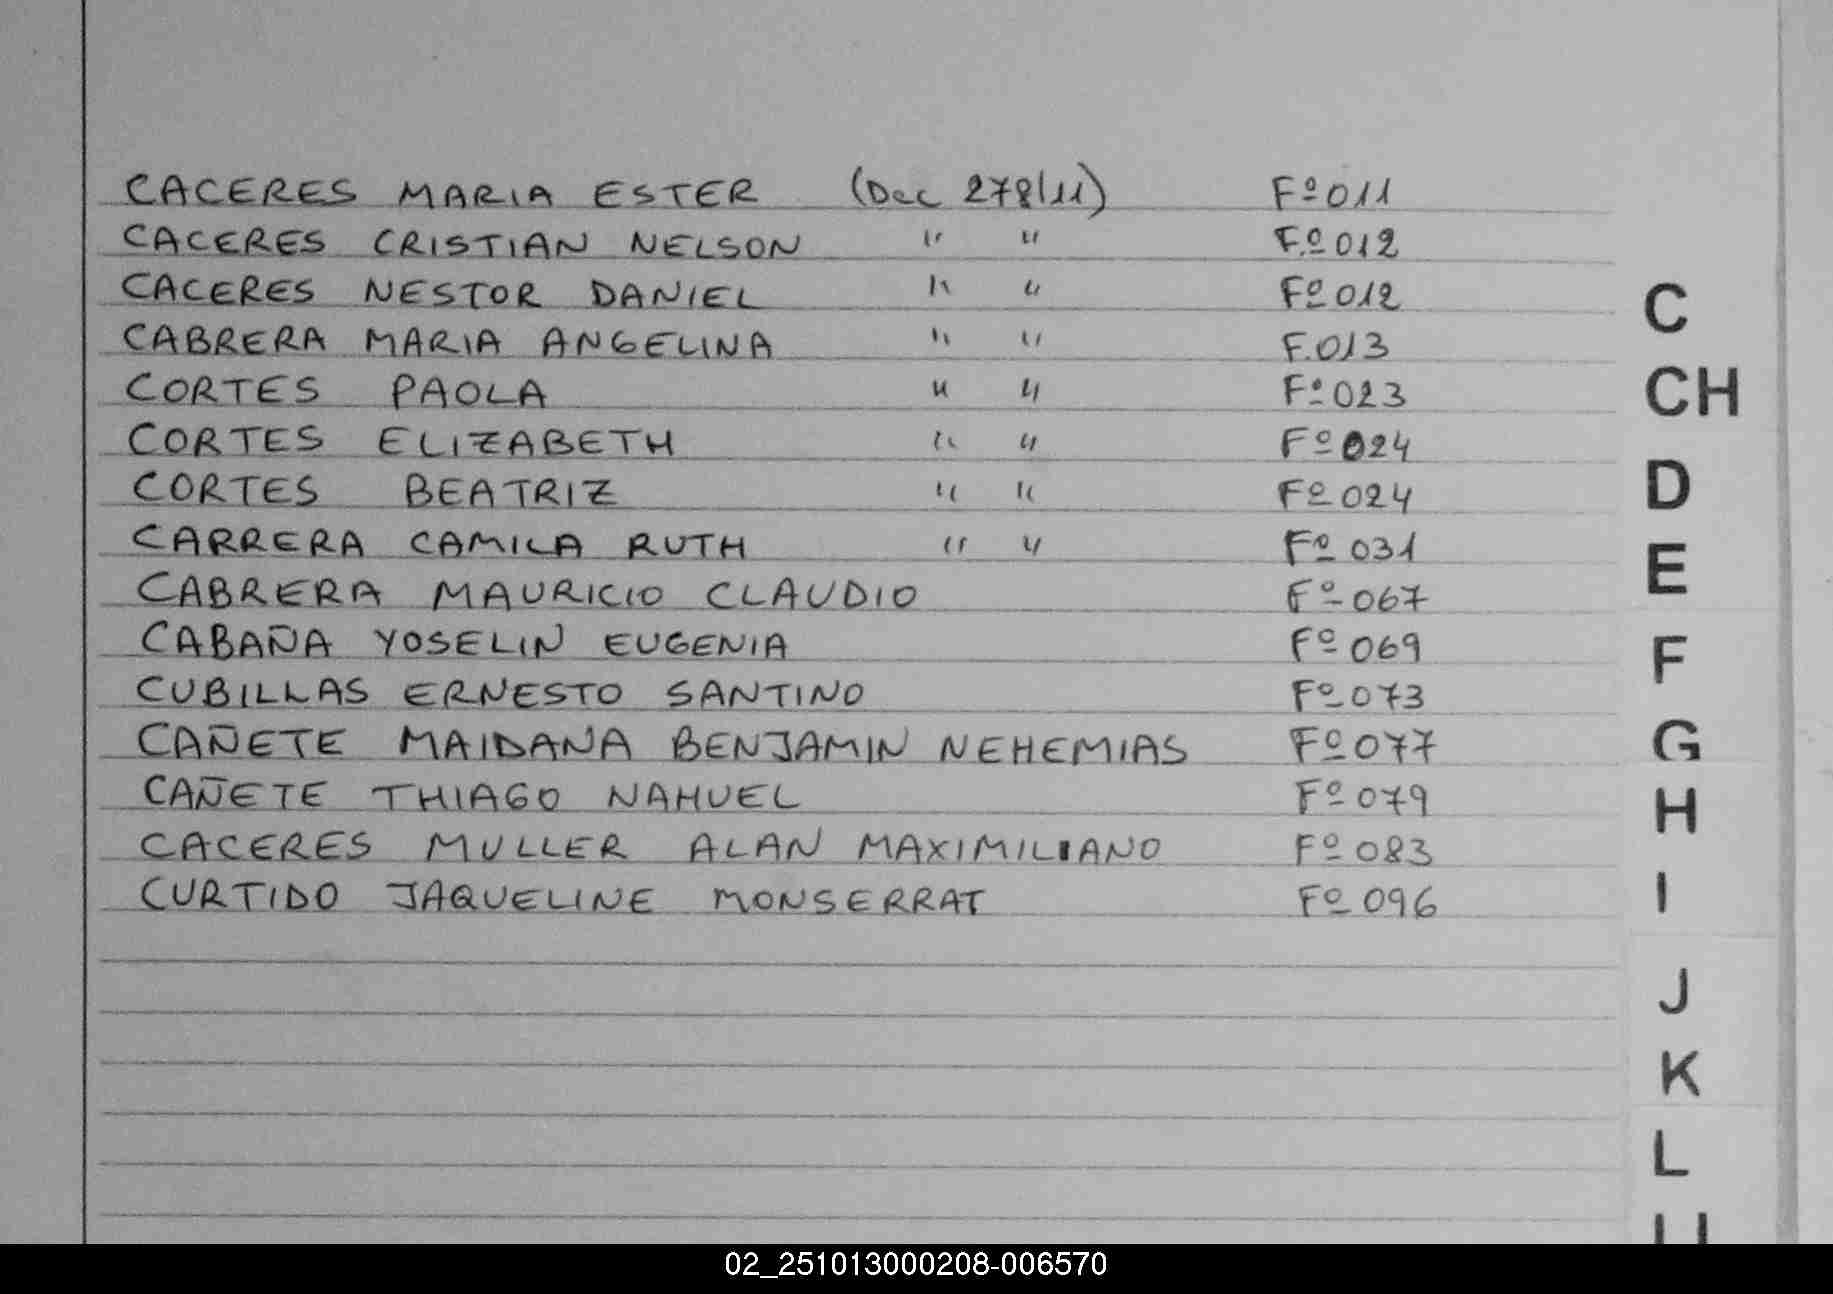 CACERES MARIA ESTER (Dec 278/11) Fº 011
CACERES CRISTIAN NELSON " " F.º 012
CACERES NESTOR DANIEL " " Fº 012
CABRERA MARIA ANGELINA " " F.013
CORTES PAOLA " " Fº 023
CORTES ELIZABETH " " Fº 024
CORTES BEATRIZ " " Fº 024
CARRERA CAMILA RUTH " " Fº 031
CABRERA MAURICIO CLAUDIO Fº 067
CABAÑA YOSELIN EUGENIA Fº 069
CUBILLAS ERNESTO SANTINO Fº 073
CAÑETE MAIDANA BENJAMIN NEHEMIAS Fº 077
CAÑETE THIAGO NAHUEL Fº 079
CACERES MULLER ALAN MAXIMILIANO Fº 083
CURTIDO JAQUELINE MONSERRAT Fº 096
C
CH
D
E
F
G
H
I
J
K
L
02_251013000208-006570